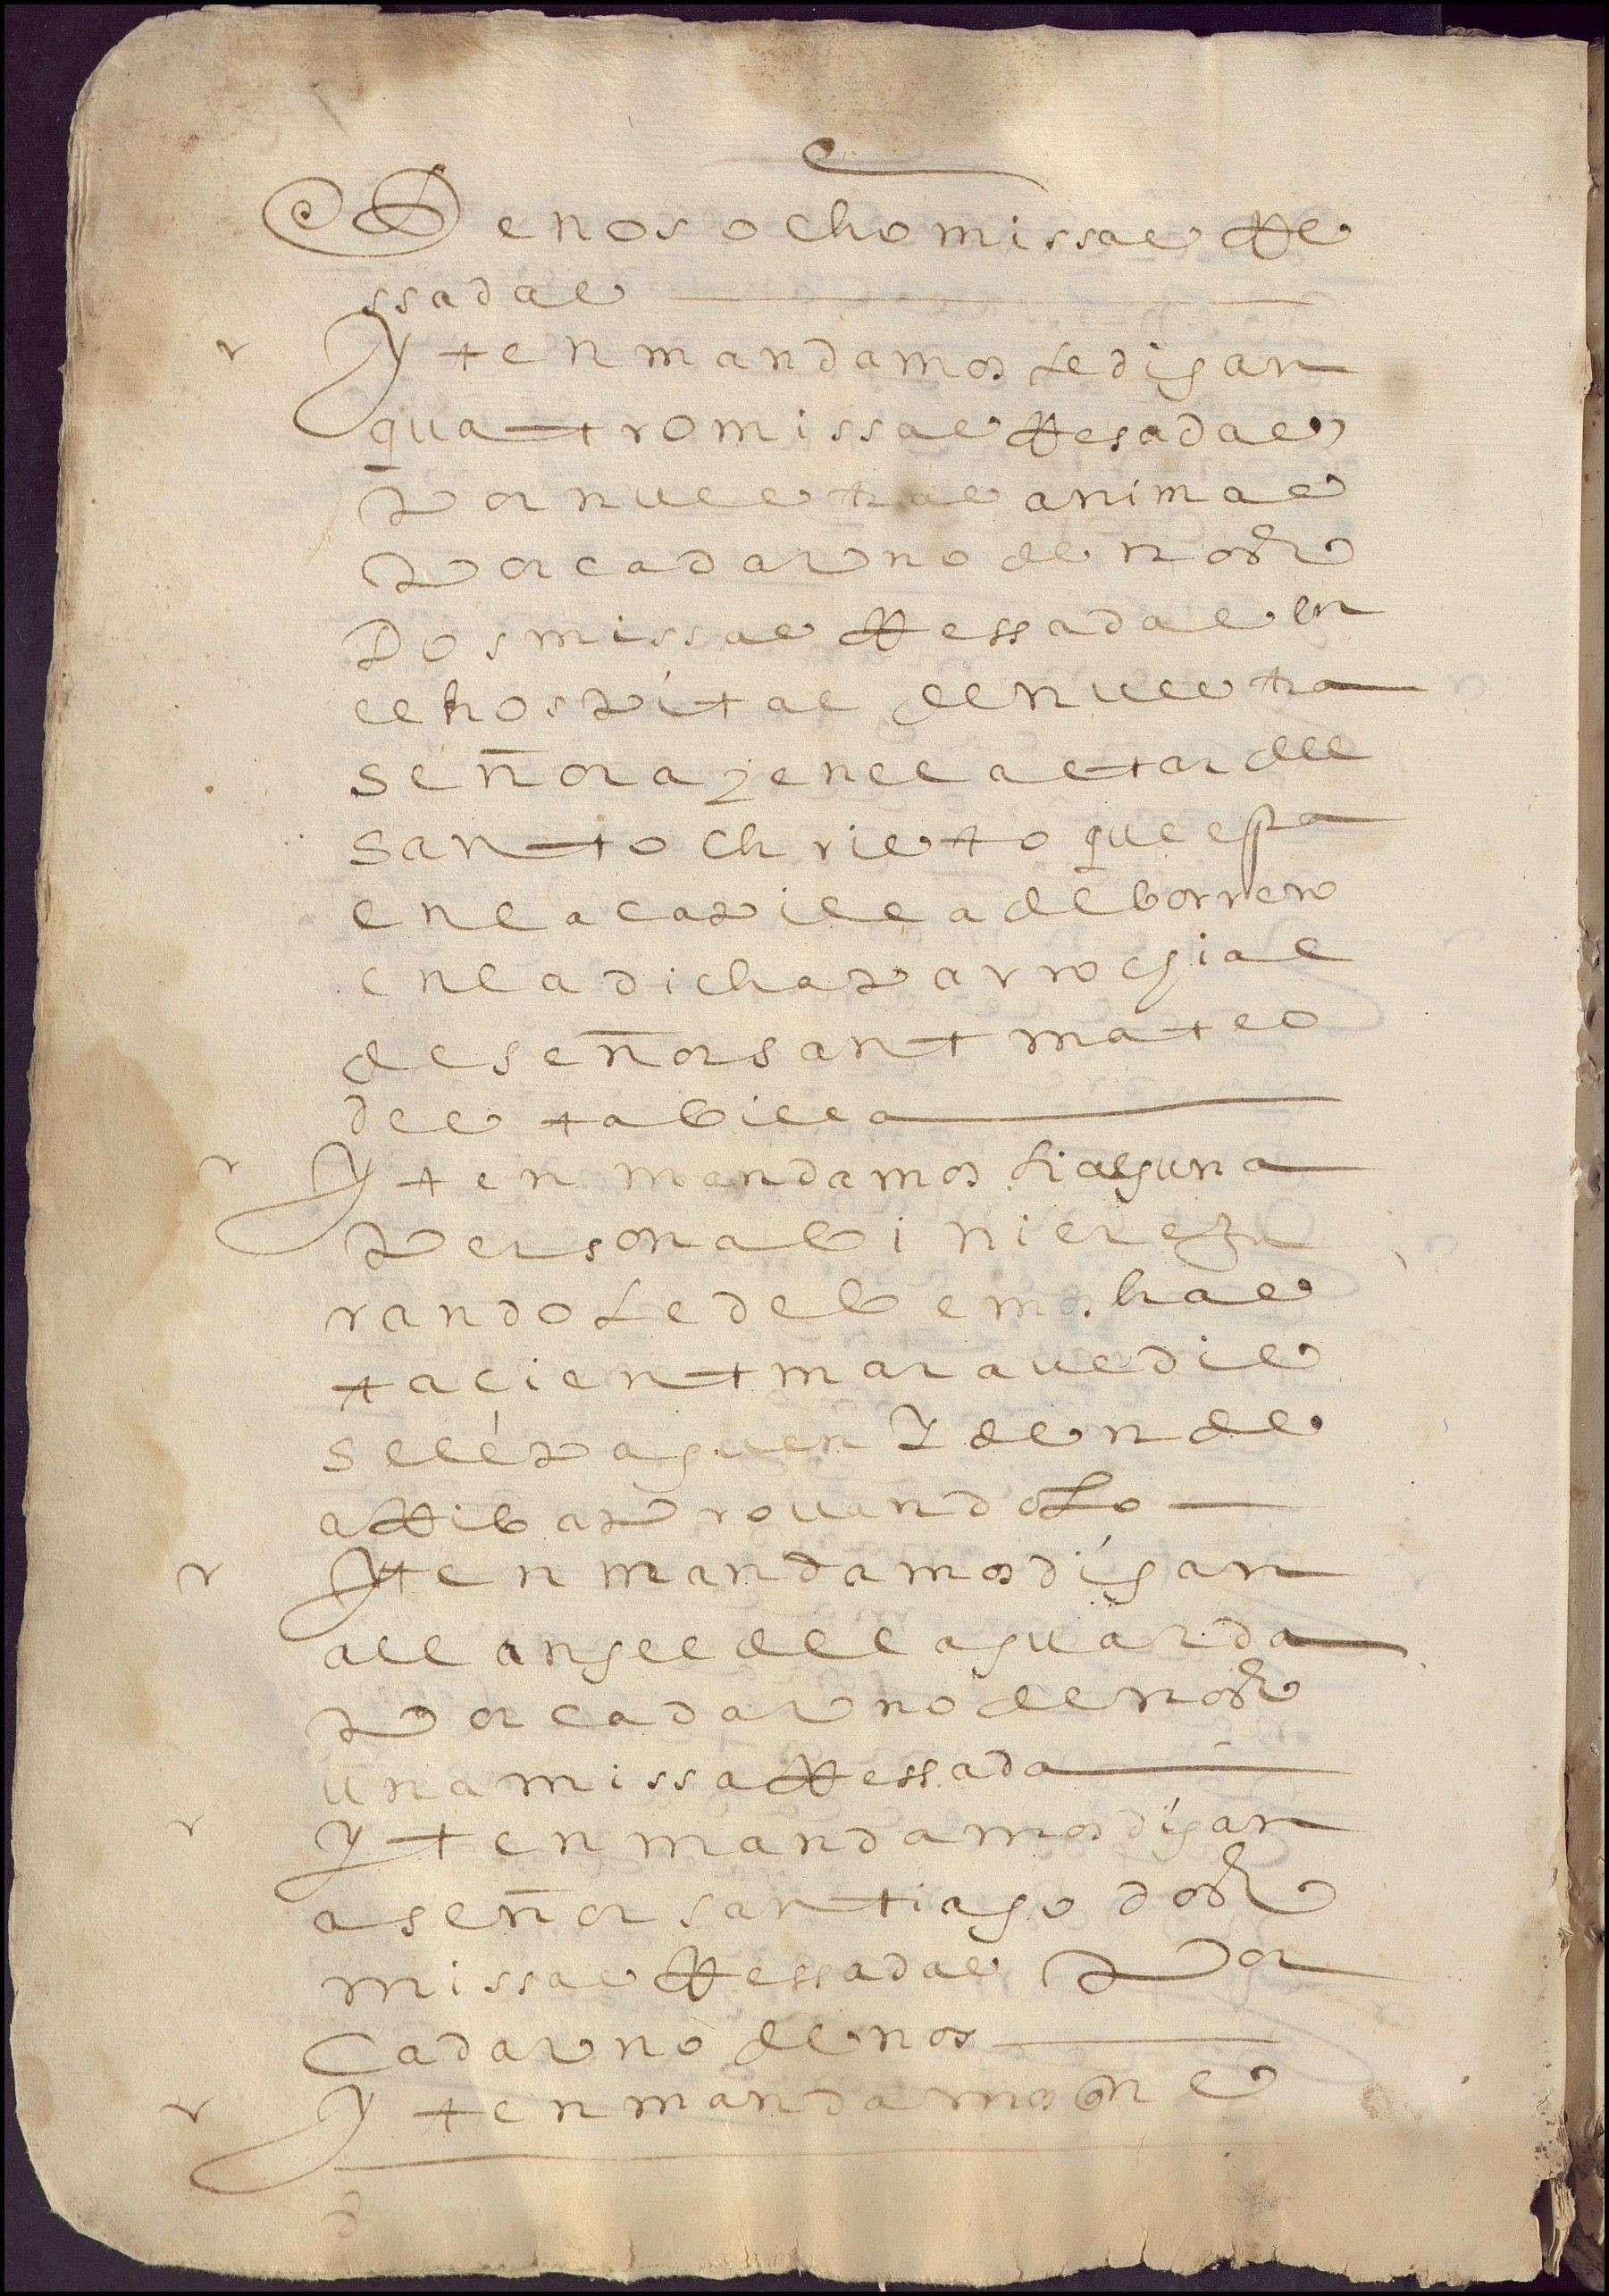 De nos ocho missas Re
ssadas
Yten mandamos se digan
quatro missas Resadas
por nuestras animas
por cada uno de nos
Dos missas Ressadas en
el hospital de nuestra
señora y en el altar del
santo christo que esta
en la capilla de borrero
en la dicha parrochial
de señor sant mateo
del tabilla
Yten mandamos si alguna
persona biniere ju
rando se debemos has
ta cient maravedis
se le paguen Y dende
aRiba provandolo
Yten mandamos digan
al angel de la guarda
por cada uno de nos
una missa Ressada
Yten mandamos digan
a señor santiago dos
missas Ressadas Por
Cada uno de nos
Yten mandamos